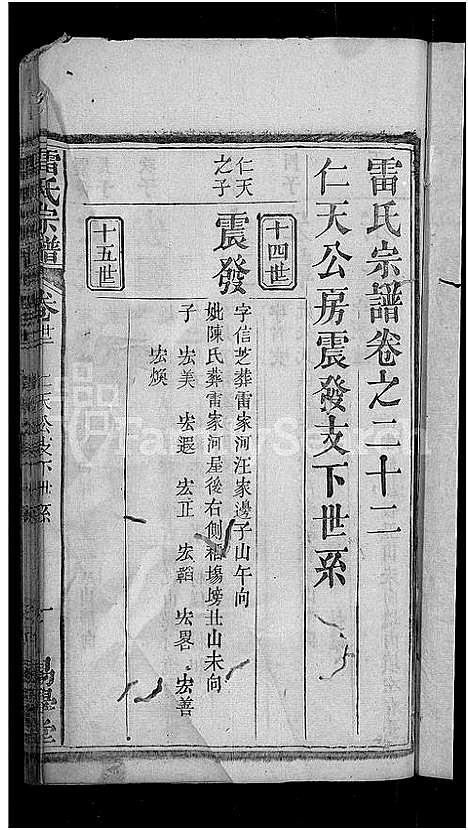 雷氏宗譜卷之二十二
仁天公房震發支下世系
十四世
仁天之子
震發
字信芝葬雷家河汪家邊子山午向
妣陳氏葬雷家河屋後右側稻場塝丑山未向
子 宏美 宏遐 宏正 宏韜 宏畧 宏善
宏煥
十五世
雷氏宗譜
卷廿二
仁天公支下世系
一
FamilySearch